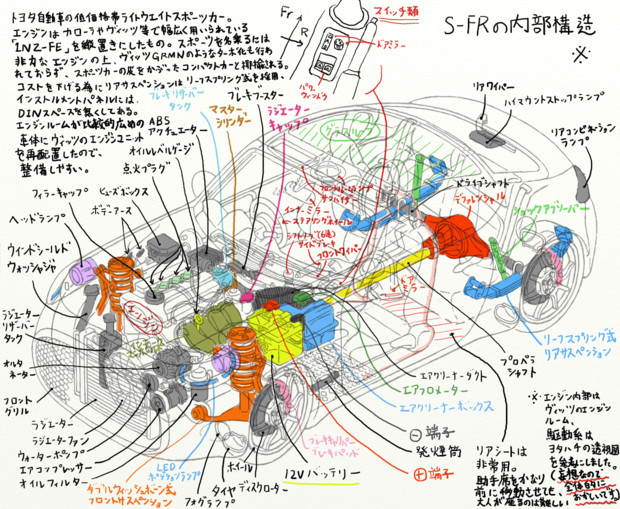 S-FRの内部構造
※
トヨタ自動車の低価格帯ライトウエイトスポーツカー。
エンジンはカローラやヴィッツ等で幅広く用いられている
「1NZ-FE」を縦置きにしたもの。スポーツを名乗るには
非力なエンジンの上、ヴィッツGRMNのようなターボ化も行わ
れておらず、スポーツカーの皮をかぶったコンパクトカーと揶揄される。
コストを下げる為にリアサスペンションはリーフスプリング式を採用。
インストルメントパネルには、
DINスペースを無くしてある。
エンジンルームが比較的広めの
車体にヴィッツのエンジンユニット
を再配置したので、
整備しやすい。
Fr
R
スイッチ類
ドアミラー
パワーウィンドウ
ブレーキリザーバー
タンク
マスター
シリンダー
ブレーキブースター
ラジエーター
キャップ
ABS
アクチュエーター
オイルレベルゲージ
点火プラグ
フィラーキャップ
ヒューズボックス
ボデーアース
ヘッドランプ
ウインドシールド
ウォッシャジャ
ラジエーター
リザーバー
タンク
オルタ
ネーター
フロント
グリル
ラジエーター
ラジエーターファン
ウォーターポンプ
エアコンプレッサー
オイルフィルター
エンジン
LED
ポジションランプ
ダブルウィッシュボーン式
フロントサスペンション
フォグランプ
タイヤ
ホイール
ディスクローター
12Vバッテリー
ブレーキキャリパー
ブレーキパッド
⊕端子
⊖端子
発煙筒
エアクリーナーボックス
エアフロメーター
エアクリーナーダクト
グラスルーフ
フロントルームランプ
サンバイザー
インナーミラー
ステアリングホイール
シフトノブ(6速)
サイドブレーキ
フロントワイパー
ドア
ミラー
リアワイパー
ハイマウントストップランプ
リアコンビネーション
ランプ
ドライブシャフト
デファレンシャル
ショックアブソーバー
リーフスプリング式
リアサスペンション
プロペラ
シャフト
リアシートは
非常用。
助手席をかなり
前に移動させても、
大人が座るのは難しい
※エンジン内部は
ヴィッツのエンジン
ルーム、
駆動系は
ヨタハチの透視図
を参考にしました。
(妄想なので
全体的に
おかしいです)